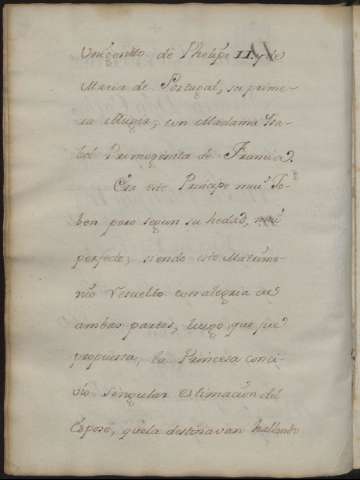 Unigenito de Phelipe II y de
Maria de Portugal, su prime-
ra Muger, con Madama Isa-
bel Primogenita de Francia.
Era este Principe mui Jo-
ben pero segun su hedad, mui
perfecto; siendo este Matrimo-
nio resuelto con alegria de
ambas partes, luego que fue
propuesta, la Princesa conci-
vio singular estimacion del
Esposo, que la destinavan hallando